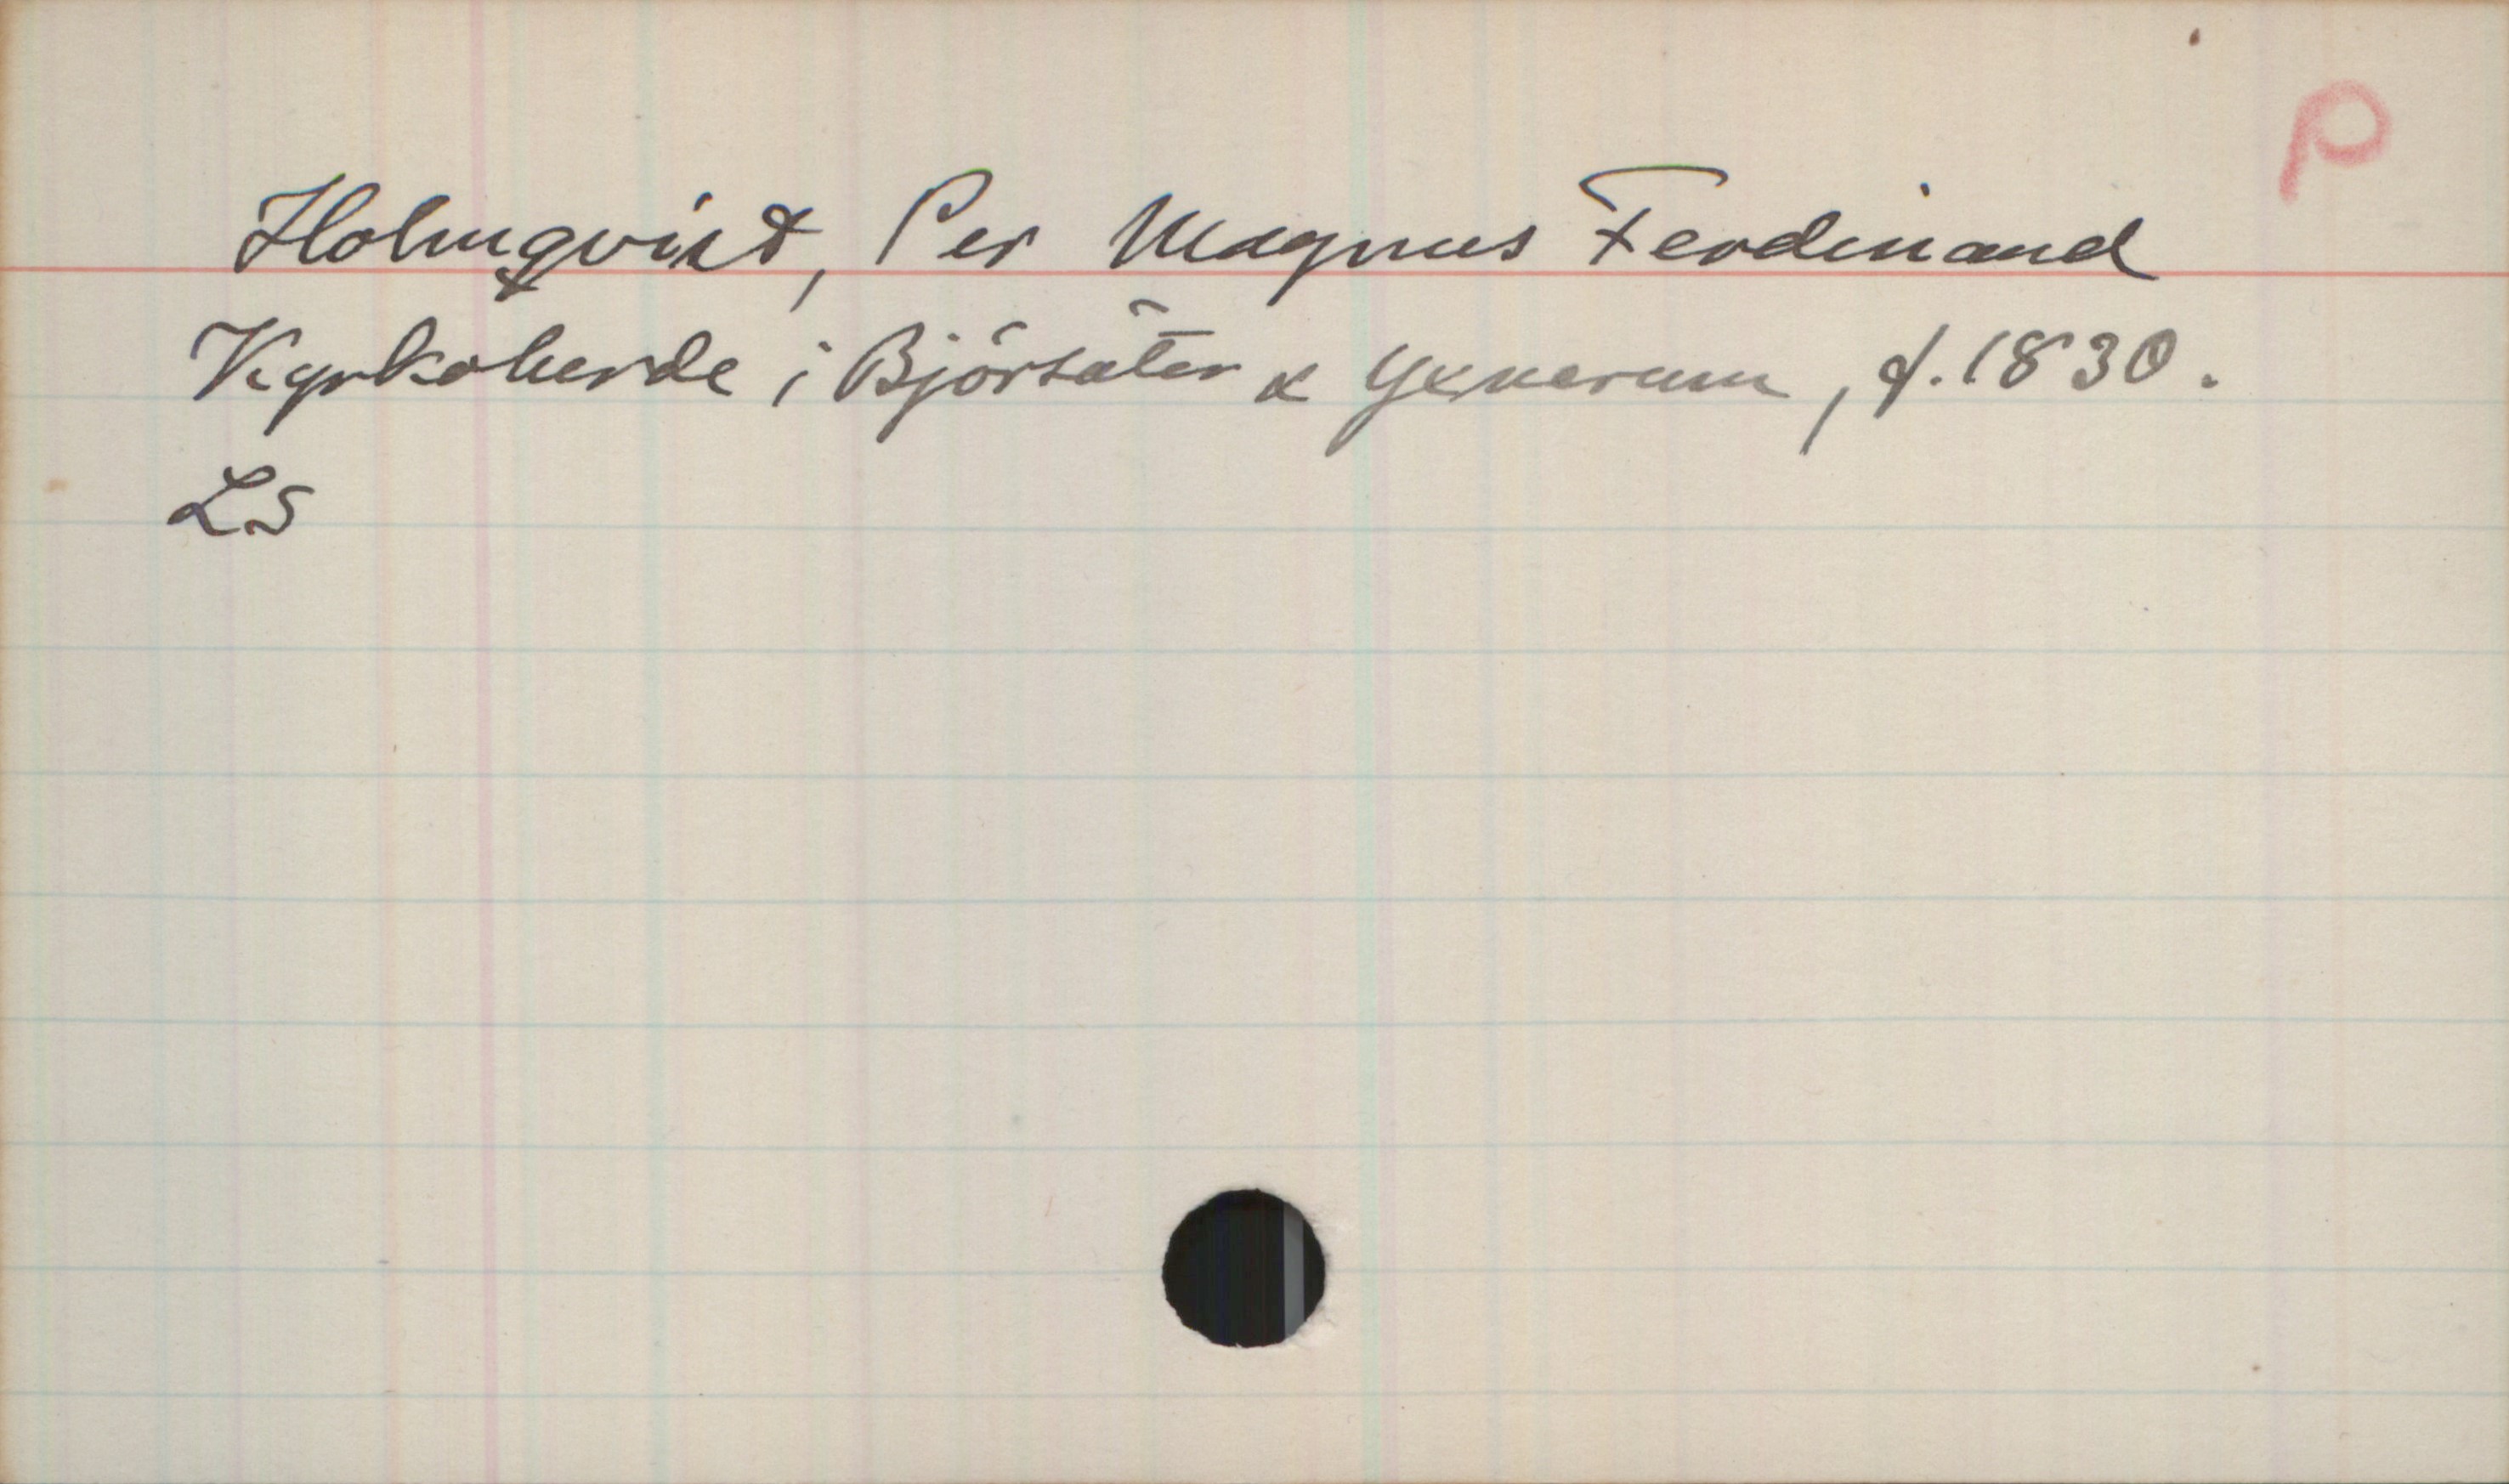 P
Holmqvist, Per Magnus Ferdinand
Kyrkoherde i Björsäter & Yxnerum, f. 1830.
LS